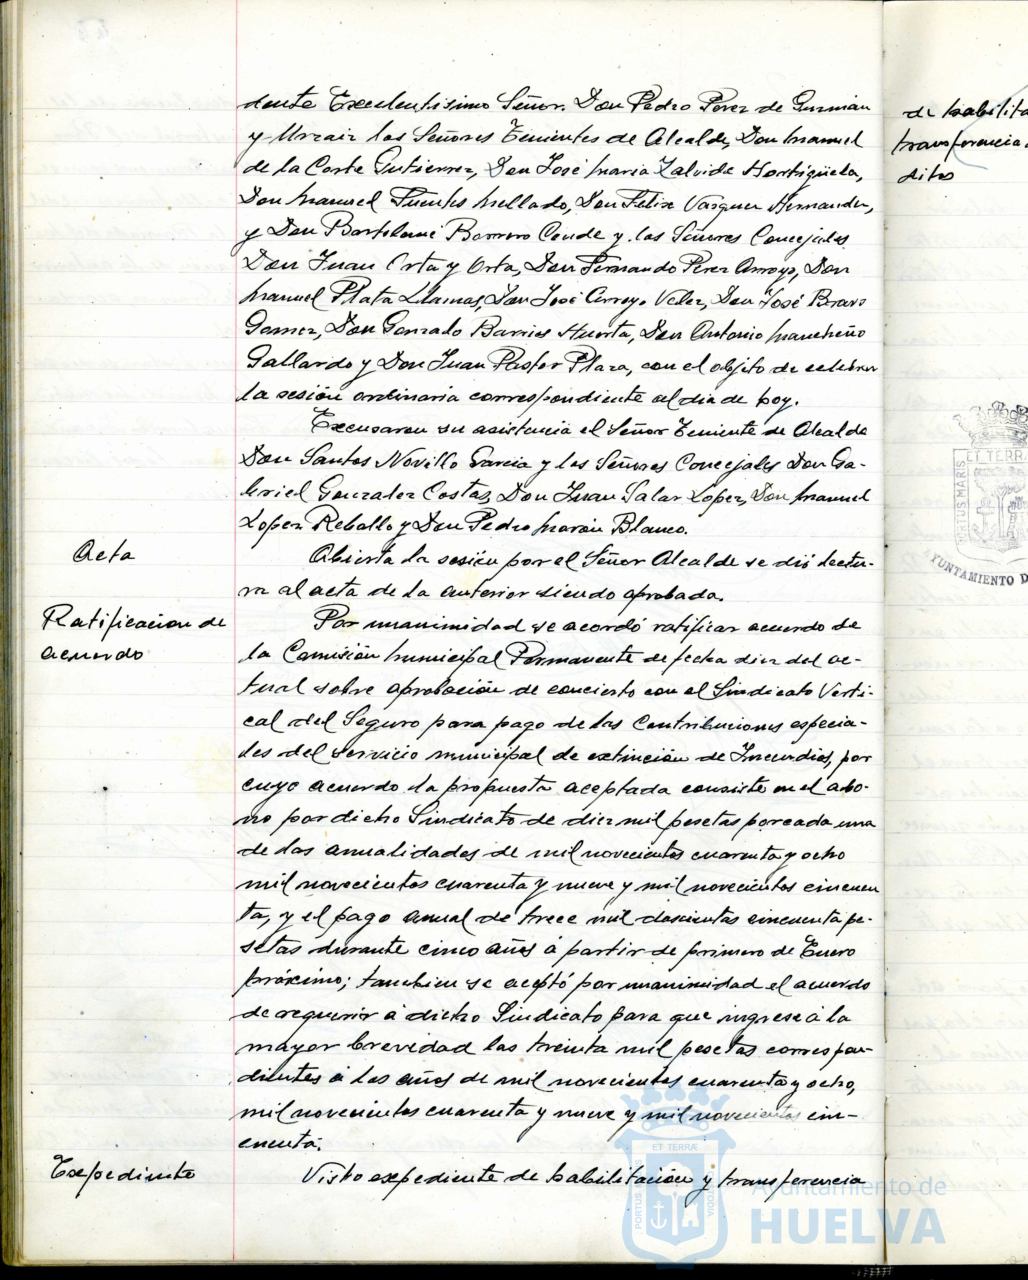 dente Excelentisimo Señor. Don Pedro Perez de Guzmán
y Urzaiz los Señores Tenientes de Alcalde, Don Manuel
de la Corte Gutierrez, Don José Maria Zalvide Hortigüela,
Don Manuel Fuentes Mellado, Don Felix Vazquez Hernandez,
y Don Bartolomé Borrero Conde y los Señores Concejales
Don Juan Orta y Orta, Don Fernando Perez Arroyo, Don
Manuel Plata Llamas, Don José Arroyo Velez, Don José Bravo
Gomez, Don Gonzalo Barrios Huerta, Don Antonio Mancheño
Gallardo y Don Juan Pastor Plaza, con el objeto de celebrar
la sesión ordinaria correspondiente al dia de hoy.
Excusaron su asistencia el Señor Teniente de Alcalde
Don Santos Novillo Garcia y los Señores Concejales Don Ga-
briel Gonzalez Costas, Don Juan Salas Lopez, Don Manuel
Lopez Rebollo y Don Pedro Morón Blanco.
Acta
Abierta la sesión por el Señor Alcalde se dió lectu-
ra al acta de la anterior siendo aprobada.
Ratificacion de
acuerdo
Por unanimidad se acordó ratificar acuerdo de
la Comisión Municipal Permanente de fecha diez del ac-
tual sobre aprobación de concierto con el Sindicato Verti-
cal del Seguro para pago de las Contribuciones especia-
les del servicio municipal de extinción de Incendios, por
cuyo acuerdo la propuesta aceptada consiste en el abo-
no por dicho Sindicato de diez mil pesetas por cada una
de las anualidades de mil novecientos cuarenta y ocho
mil novecientos cuarenta y nueve y mil novecientos cincuen
ta, y el pago anual de trece mil doscientas cincuenta pe-
setas durante cinco años á partir de primero de Enero
próximo; tambien se aceptó por unanimidad el acuerdo
de requerir á dicho Sindicato para que ingrese á la
mayor brevedad las treinta mil pesetas correspon-
dientes á los años de mil novecientos cuarenta y ocho,
mil novecientos cuarenta y nueve y mil novecientos cin-
cuenta.
Expediente
Visto expediente de habilitación y transferencia
de habilita
transferencia
ditos
ET TERRA
PORTUS MARIS
AYUNTAMIENTO D
ET TERRÆ
PORTUS
CUSTODIA
Ayuntamiento de
HUELVA